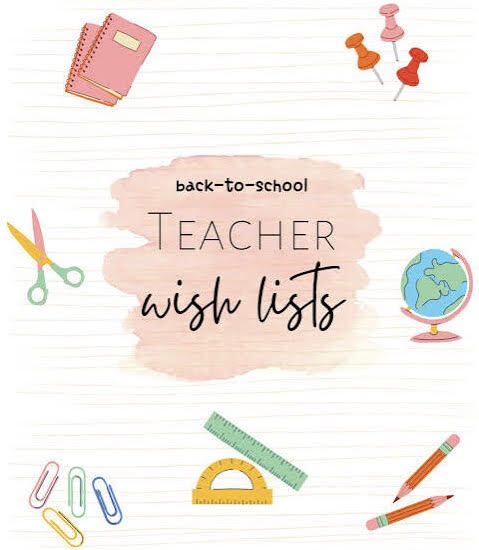 back-to-school
TEACHER
wish lists